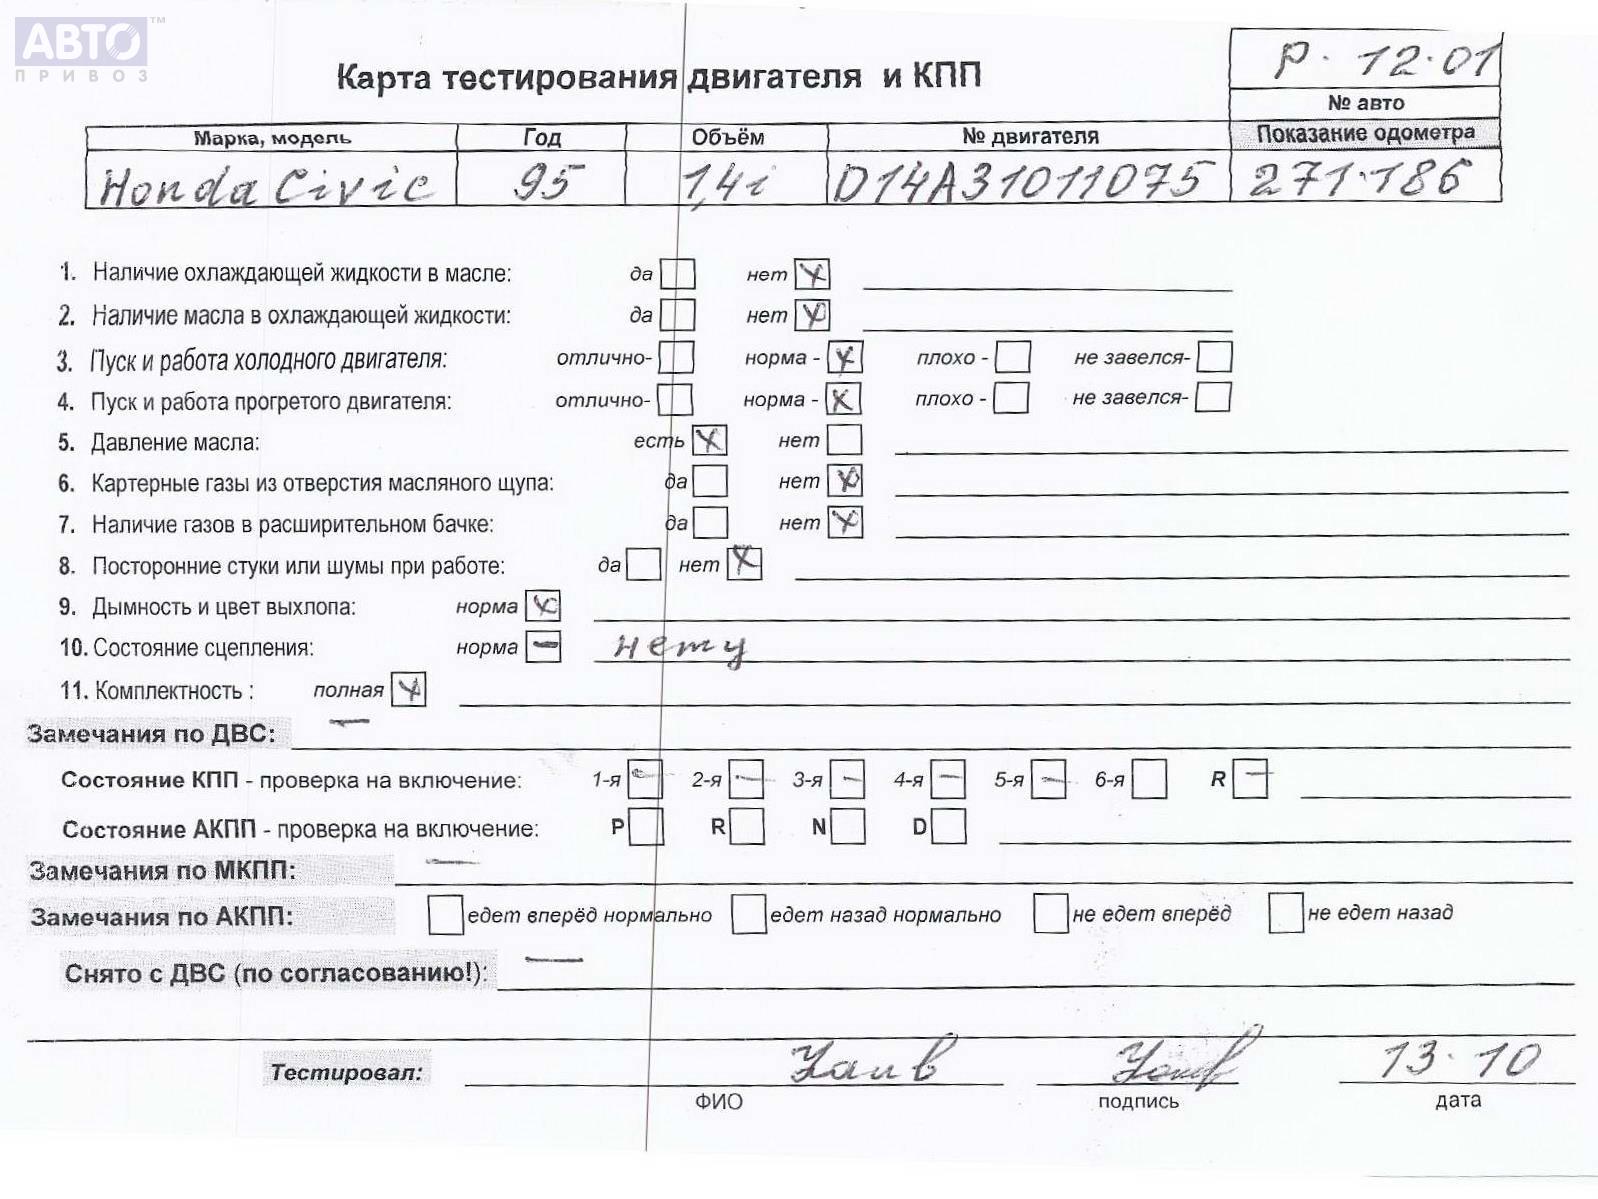 АВТО™
ПРИВОЗ
Карта тестирования двигателя и КПП
Р. 12.01
№ авто
Марка, модель Год Объём № двигателя Показание одометра
Honda Civic 95 1,4i D14A31011075 271.186
1. Наличие охлаждающей жидкости в масле: да нет
2. Наличие масла в охлаждающей жидкости: да нет
3. Пуск и работа холодного двигателя: отлично- норма - плохо - не завелся-
4. Пуск и работа прогретого двигателя: отлично- норма - плохо - не завелся-
5. Давление масла: есть нет
6. Картерные газы из отверстия масляного щупа: да нет
7. Наличие газов в расширительном бачке: да нет
8. Посторонние стуки или шумы при работе: да нет
9. Дымность и цвет выхлопа: норма
10. Состояние сцепления: норма нету
11. Комплектность : полная
Замечания по ДВС: —
Состояние КПП - проверка на включение: 1-я 2-я 3-я 4-я 5-я 6-я R
Состояние АКПП - проверка на включение: P R N D
Замечания по МКПП: —
Замечания по АКПП: едет вперёд нормально едет назад нормально не едет вперёд не едет назад
Снято с ДВС (по согласованию!): —
Тестировал: 13.10
ФИО подпись дата